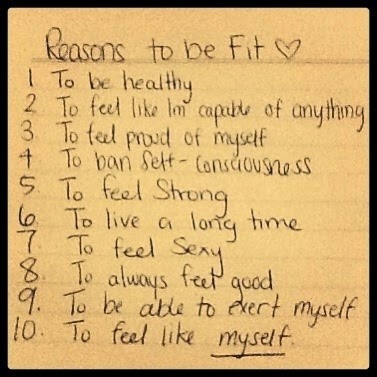 Reasons to be Fit ♡
1 To be healthy
2 To feel like Im capable of anything
3. To feel proud of myself
4 To ban Self-Consciousness
5. To feel Strong
6. To live a long time
7. To feel Sexy
8. To always feel good
9. To be able to exert myself
10. To feel like myself.